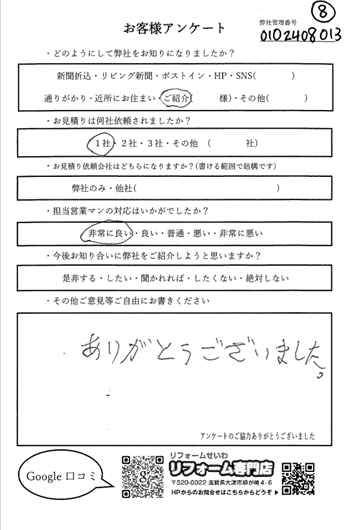 ⑧
お客様アンケート
弊社管理番号
0102408013
・どのようにして弊社をお知りになりましたか?
新聞折込・リビング新聞・ポストイン・HP・SNS( )
通りがかり・近所にお住まい・ご紹介( 様)・その他( )
・お見積りは何社依頼されましたか?
1社・2社・3社・その他 ( 社)
・お見積り依頼会社はどちらになりますか?(書ける範囲で結構です)
弊社のみ・他社( )
・担当営業マンの対応はいかがでしたか?
非常に良い・良い・普通・悪い・非常に悪い
・今後お知り合いに弊社をご紹介しようと思いますか?
是非する・したい・聞かれれば・したくない・絶対しない
・その他ご意見等ご自由にお書きください
ありがとうございました。
アンケートのご協力ありがとうございました
Google 口コミ
リフォームせいわ
リフォーム専門店
〒520-0022 滋賀県大津市柳が崎4-6
HPからのお問合せはこちらからどうぞ